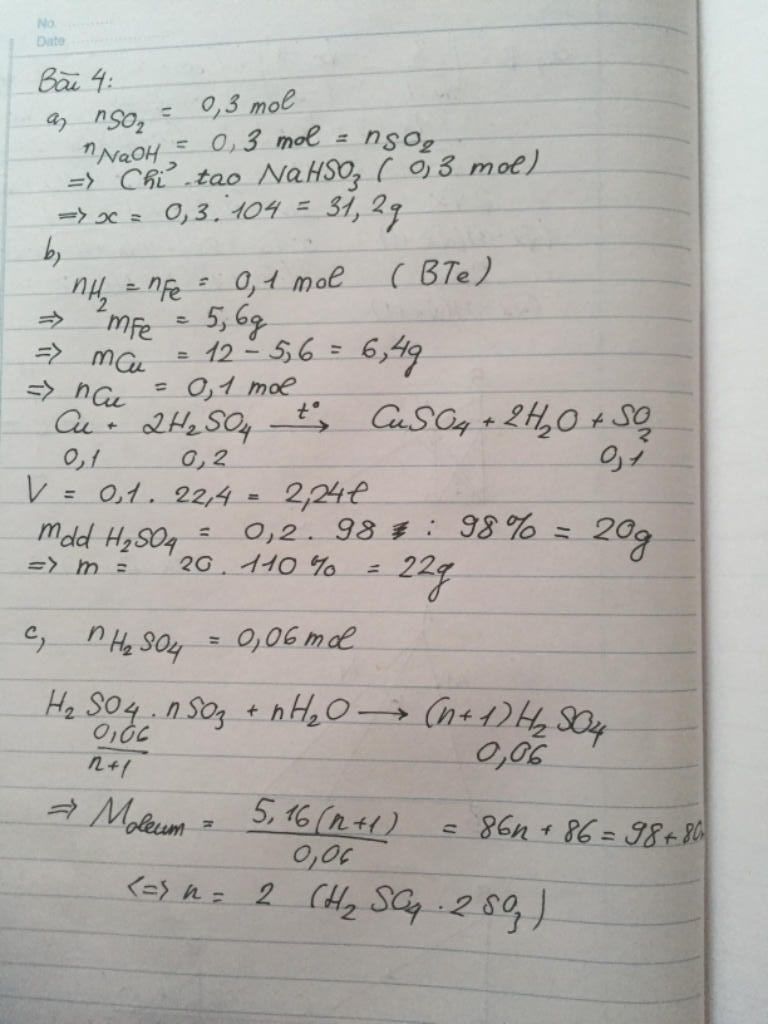 No.
Date
Bài 4:
a, nSO₂ = 0,3 mol
nNaOH = 0,3 mol = nSO₂
=> Chỉ tạo NaHSO₃ ( 0,3 mol)
=> x = 0,3 . 104 = 31,2g
b,
nH₂ = nFe = 0,1 mol ( BTe)
=> mFe = 5,6g
=> mCu = 12 - 5,6 = 6,4g
=> nCu = 0,1 mol
Cu + 2H₂SO₄ —t°→ CuSO₄ + 2H₂O + SO₂
0,1 0,2 0,1
V = 0,1 . 22,4 = 2,24l
mdd H₂SO₄ = 0,2 . 98 : 98% = 20g
=> m = 20 . 110% = 22g
c, nH₂SO₄ = 0,06mol
H₂SO₄.nSO₃ + nH₂O → (n+1)H₂SO₄
0,06/(n+1) 0,06
=> Moleum = 5,16(n+1)/0,06 = 86n + 86 = 98 + 80
<=> n = 2 (H₂SO₄ . 2SO₃)